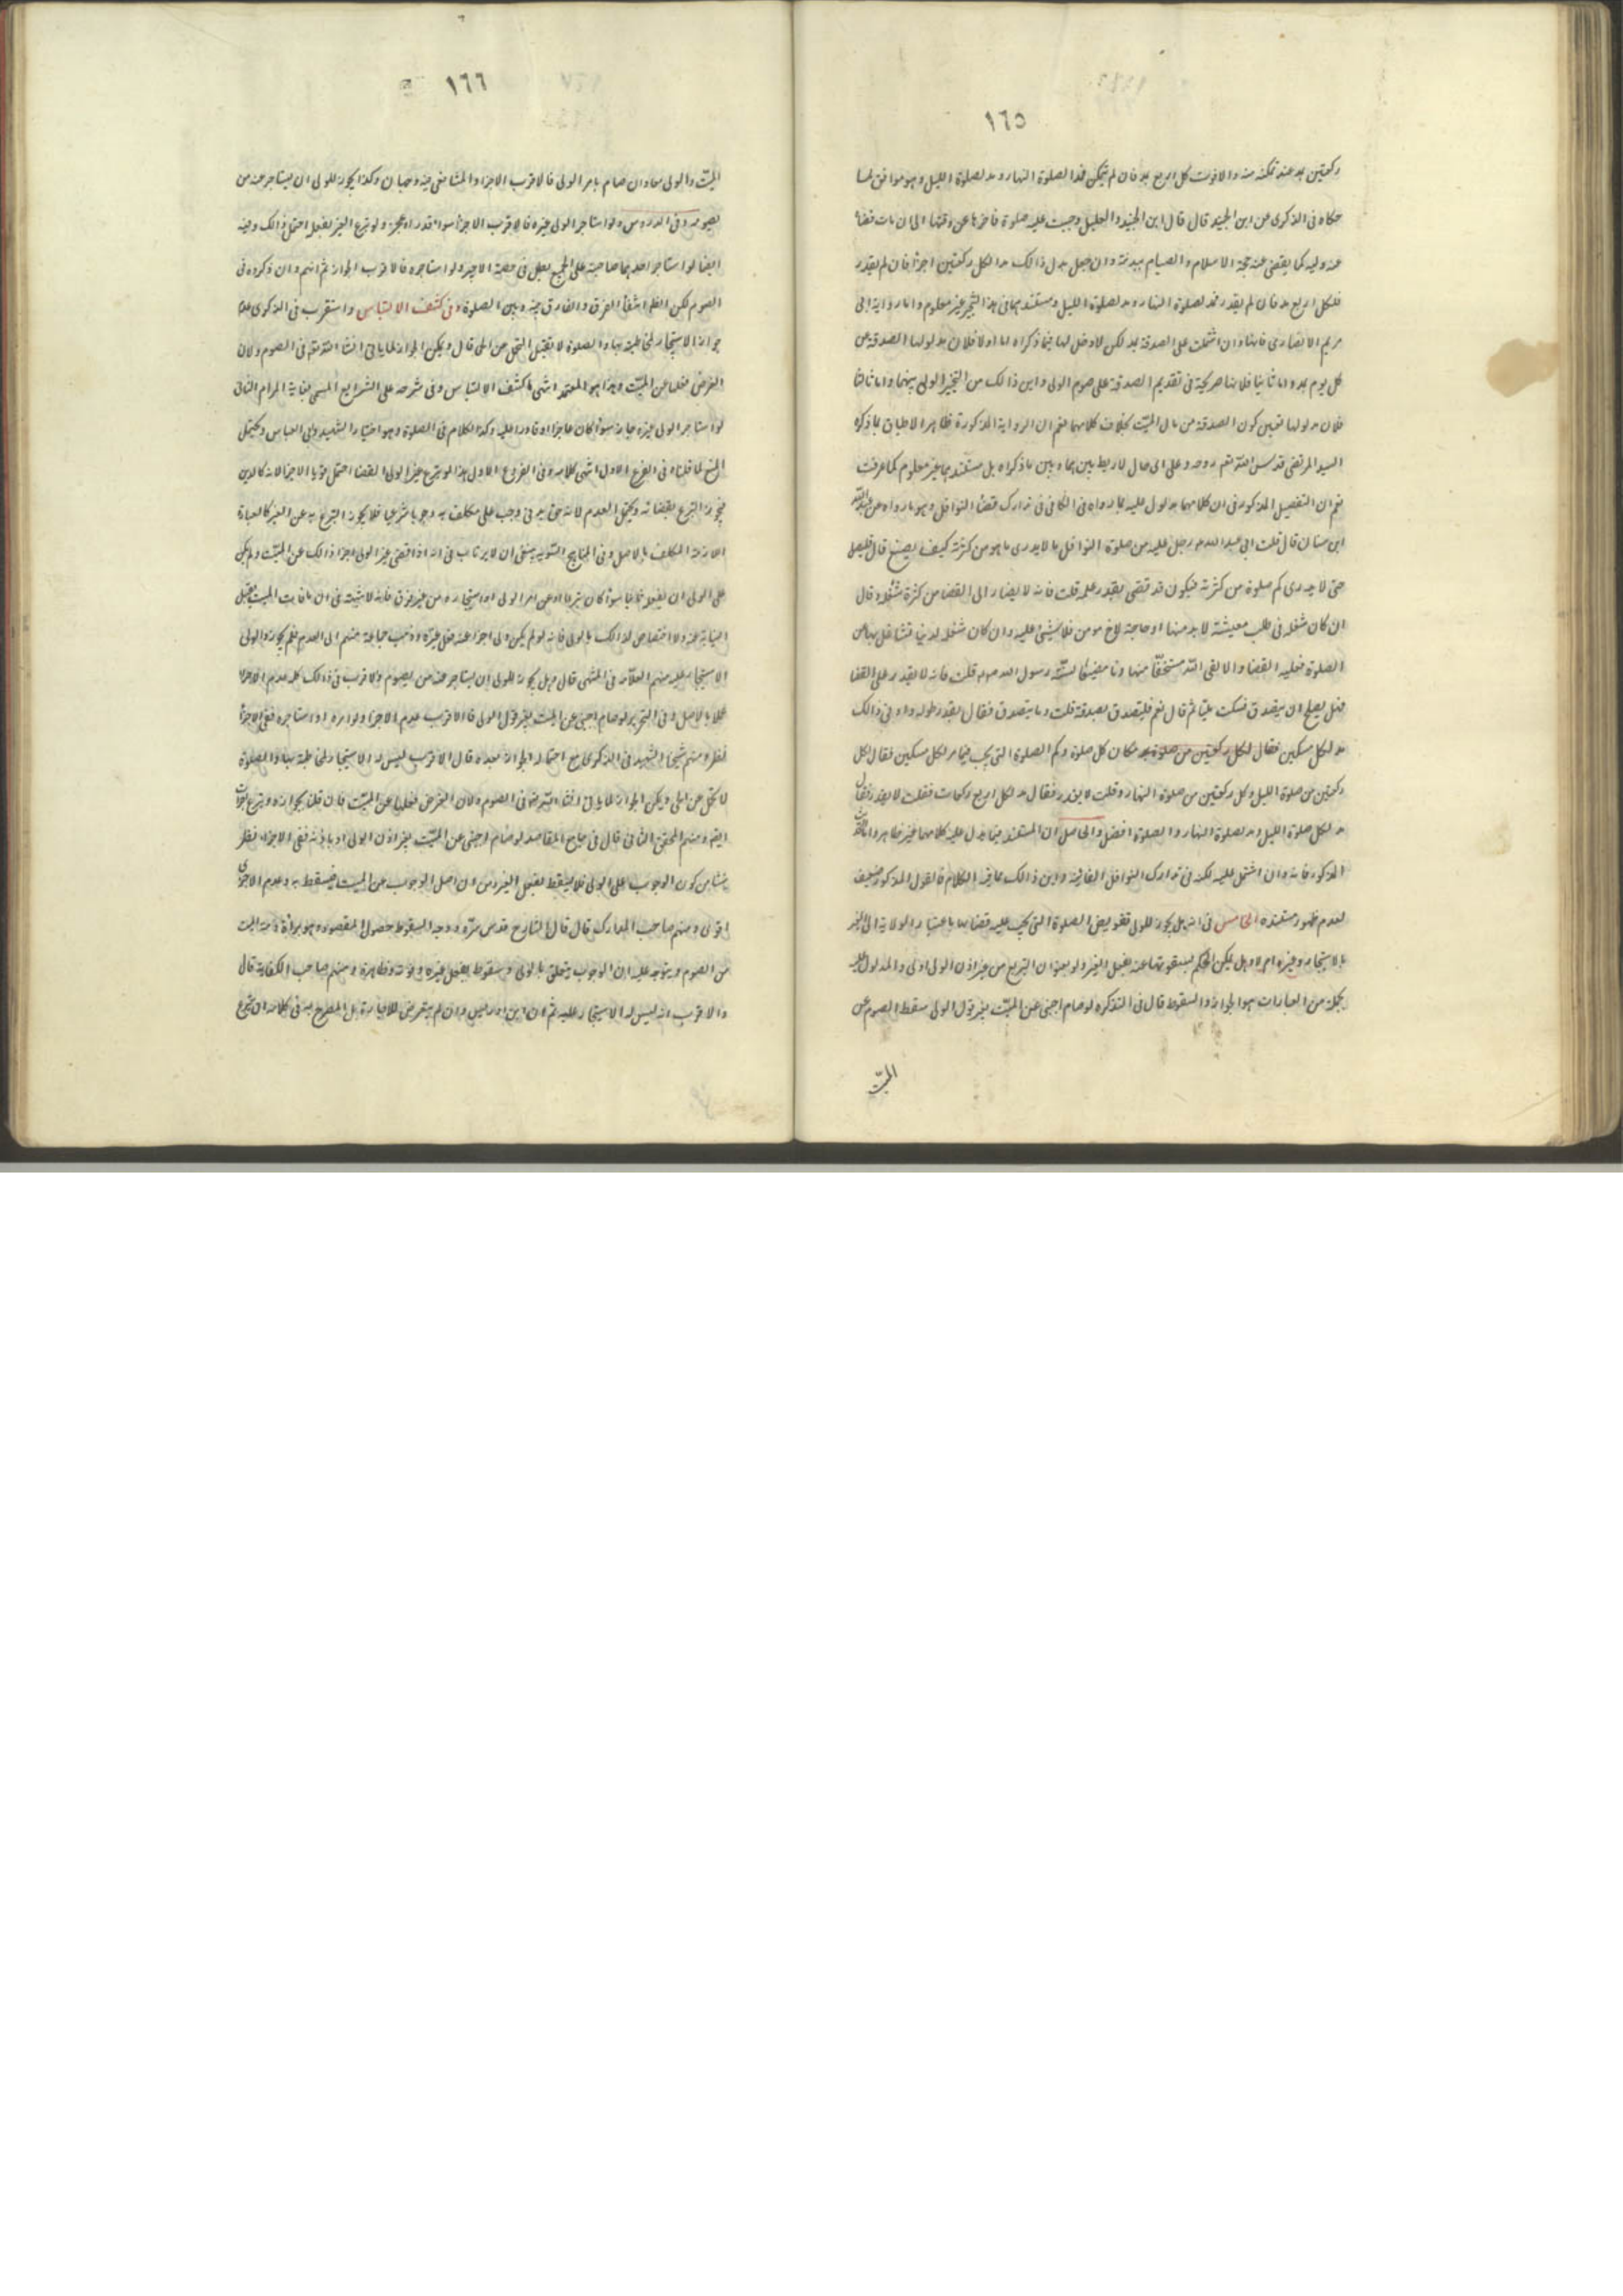 ١٦٥
ركعتين مد عند تمكنه منه والا فوت كل اربع مد فان لم يتمكن فمد الصلوة النهار ومد لصلوة الليل وهو موافق لما
حكاه فى الذكرى عن ابن الجنيد قال قال ابن الجنيد والعليل وجبت عليه صلوة فاخرها عن وقتها الى ان مات قضاها
عنه وليه كما يقضى عنه حجة الاسلام والصيام ببدنه وان جعل بدل ذالك مدا لكل ركعتين اجزا فان لم يقدر
فلكل اربع مد فان لم يقدر فمد لصلوة النهار ومد لصلوة الليل ومستندهما فى هذا التخيير غير معلوم واما رواية ابى
مريم الانصارى فانها وان اشتملت على الصدقة بمد لكن لا دخل لها فيما ذكراه اما اولا فلان مدلولها الصدقة عن
كل يوم بمد واما ثانيا فلانها صريحة فى تقديم الصدقة على صوم الولى واين ذالك من التخيير الولى بينهما واما ثالثا
فلان مدلولها تعين كون الصدقة من مال الميّت بخلاف كلامهما نعم ان الرواية المذكورة ظاهر الانطباق بما ذكره
السيد المرتضى قدس الله روحه وعلى اى حال لا ربط بين بهما وبين ما ذكراه بل مستندهما غير معلوم كما عرفت
نعم ان التفصيل المذكور فى ان كلامهما مدلول عليه بما رواه فى الكافى فى تدارك قضاء النوافل وهو ما رواه عن عبدالله
ابن سنان قال قلت ابى عبدالله رجل عليه من صلوة النوافل ما لا يدرى ما هو من كثرته كيف يصنع قال فليصل
حتى لا يدرى كم صلوة من كثرته فيكون قد قضى بقدر علمه قلت فانه لا يقدر الى القضا من كثرة شغله قال
ان كان شغله فى طلب معيشة لا بد منها او حاجة لاخ مومن فلا شيئ عليه وان كان شغله لدنيا فتشاغل بها عن
الصلوة فعليه القضا والا لقى الله مستخفّا متهاونا مضيعا لسنّة رسول الله قلت فانه لا يقدر على القضا
فهل يصلح ان يتصدق فسكت مليّا ثم قال نعم فليتصدق بصدقة قلت وما يتصدق فقال بقدر طوله وادنى ذالك
مد لكل مسكين فقال لكل ركعتين من صلوة مد مكان كل صلوة وكم الصلوة التى يجب فيها مد لكل مسكين فقال لكل
ركعتين من صلوة الليل وكل ركعتين من صلوة النهار وقلت لا يقدر فقال مد لكل اربع ركعات فقلت لا يقدر فقال
مد لكل صلوة الليل ومد لصلوة النهار والصلوة افضل والحاصل ان المستند فيما يدل عليه كلامهما غير ظاهر واما
المذكور فانه وان اشتمل عليه لكنه فى تدارك النوافل الفائتة واين ذالك مما فيه الكلام فالقول المذكور ضعيف
لعدم ظهور مستنده الخامس فى انه هل يجوز للولى تفويض الصلوة التى يجب عليه قضاها باعتبار الولاية الى الغير
بالاستيجار وغيره ام لا وهل يمكن الحكم بسقوتها عنه بفعل الغير ولو بعنوان التبرع من غير اذن الولى اولى والمدلول عليه
بجملة من العبارات هو الجواز والسقوط قال فى التذكره لو صام اجنبى عن الميّت بغير قول الولى سقط الصوم عن
الميّت
١٦٦
الميّت والولى معا وان صام بامر الولى فالاقرب الاجزا وللشافعى فيه وجهان وكذا يجوز للولى ان يستاجر عنه من
يصومه وفى الدروس ولو استاجر الولى غيره فالاقرب الاجزا سواء قدر او عجز ولو تبرع الغير بفعله احتمل ذالك وفيه
ايضا لو استاجر احدهما صاحبه على الجميع بطل فى حصة الاجير ولو استاجره فالاقرب الجواز ثم انهم وان ذكروه فى
الصوم لكن الظاهر انتفاء الفرق والفارق بينه وبين الصلوة وفى كشف الالتباس واستقرب فى الذكرى عدم
جواز الاستيجار لمخاطبته بها والصلوة لا تقبل التحمل عن الحى قال ويمكن الجواز لما ياتى انشاء الله تعالى فى الصوم ولان
الغرض فعلها عن الميّت وهذا هو المعتمد انتهى ما كشف الالتباس وفى شرحه على الشرايع المسمى بغاية المرام الثانى
لو استاجر الولى غيره جاز سواء كان عاجزا او قادرا عليه وكذا الكلام فى الصلوة وهو اختيار الشهيد وابى العباس ويحتمل
المنع لما قلناه فى الفرع الاول انتهى كلامه وفى الفروع الاول هذا لو تبرع غير الولى القضا احتمل قويا الاجزا لانه كالدين
فيجوز التبرع بقضائه ويحتمل العدم لانه حق بدنى وجب على مكلف به وجوبا شرعيا فلا يجوز التبرع به عن الغير كالعبادة
اللازمة المكلف بالاصل وفى المناهج السوية ينبغى ان لا يرتاب فى انه اذا قضى غير الولى اجزا ذالك عن الميّت ولم يكن
على الولى ان يفعله ثانيا سواء كان تبرعا او عن امر الولى او استيجاره من غير فرق فانه لا شبهة فى ان ما فات الميت يقبل
النيابة عنه ولا اختصاص لذالك بالولى فانه لو لم يكن ولى اجزا عنه فعل غيره وذهب جماعة منهم الى العدم فلم يجوزوا للولى
الاستيجار عليه منهم العلّامه فى المنتهى قال هل يجوز للولى ان يستاجر عنه من يصوم الاقرب فى ذالك كله عدم الاجزا
عملا بالاصل وفى التحرير لو صام اجنبى عن الميت بغير قول الولى فالاقرب عدم الاجزا ولو امره او استاجره ففى الاجزا
نظر ومنهم شيخنا الشهيد فى الذكرى مع احتماله الجواز بعده قال الاقرب ليس له الاستيجار لمخاطبته بها والصلوة
لا تحمل عن الحى ويمكن الجواز لما ياتى انشاء الله تعالى فى الصوم ولان الغرض فعلها عن الميّت فان قلنا بجوازه وتبرع
ايضا ومنهم المحقق الثانى قال فى جامع المقاصد لو صام اجنبى عن الميّت بغير اذن الولى او باذنه ففى الاجزاء نظر
ينشا من كون الوجوب على الولى فلا يسقط بفعل الغير ومن ان اصل الوجوب عن الميت فيسقط به وعدم الاجزا
اقوى ومنهم صاحب المدارك قال قال الشارح قدس سرّه ووجه السقوط حصول المقصود وهو براءة ذمة الميت
من الصوم ويتوجه عليه ان الوجوب يتعلق بالولى وسقوطه بفعل غيره يحتاج الى دليل ومنهم صاحب الكفاية قال
والاقرب انه ليس له الاستيجار عليه ثم ان ابن ادريس وان لم يتعرض للاجارة بل المصرح به فى كلامه ان تبرع